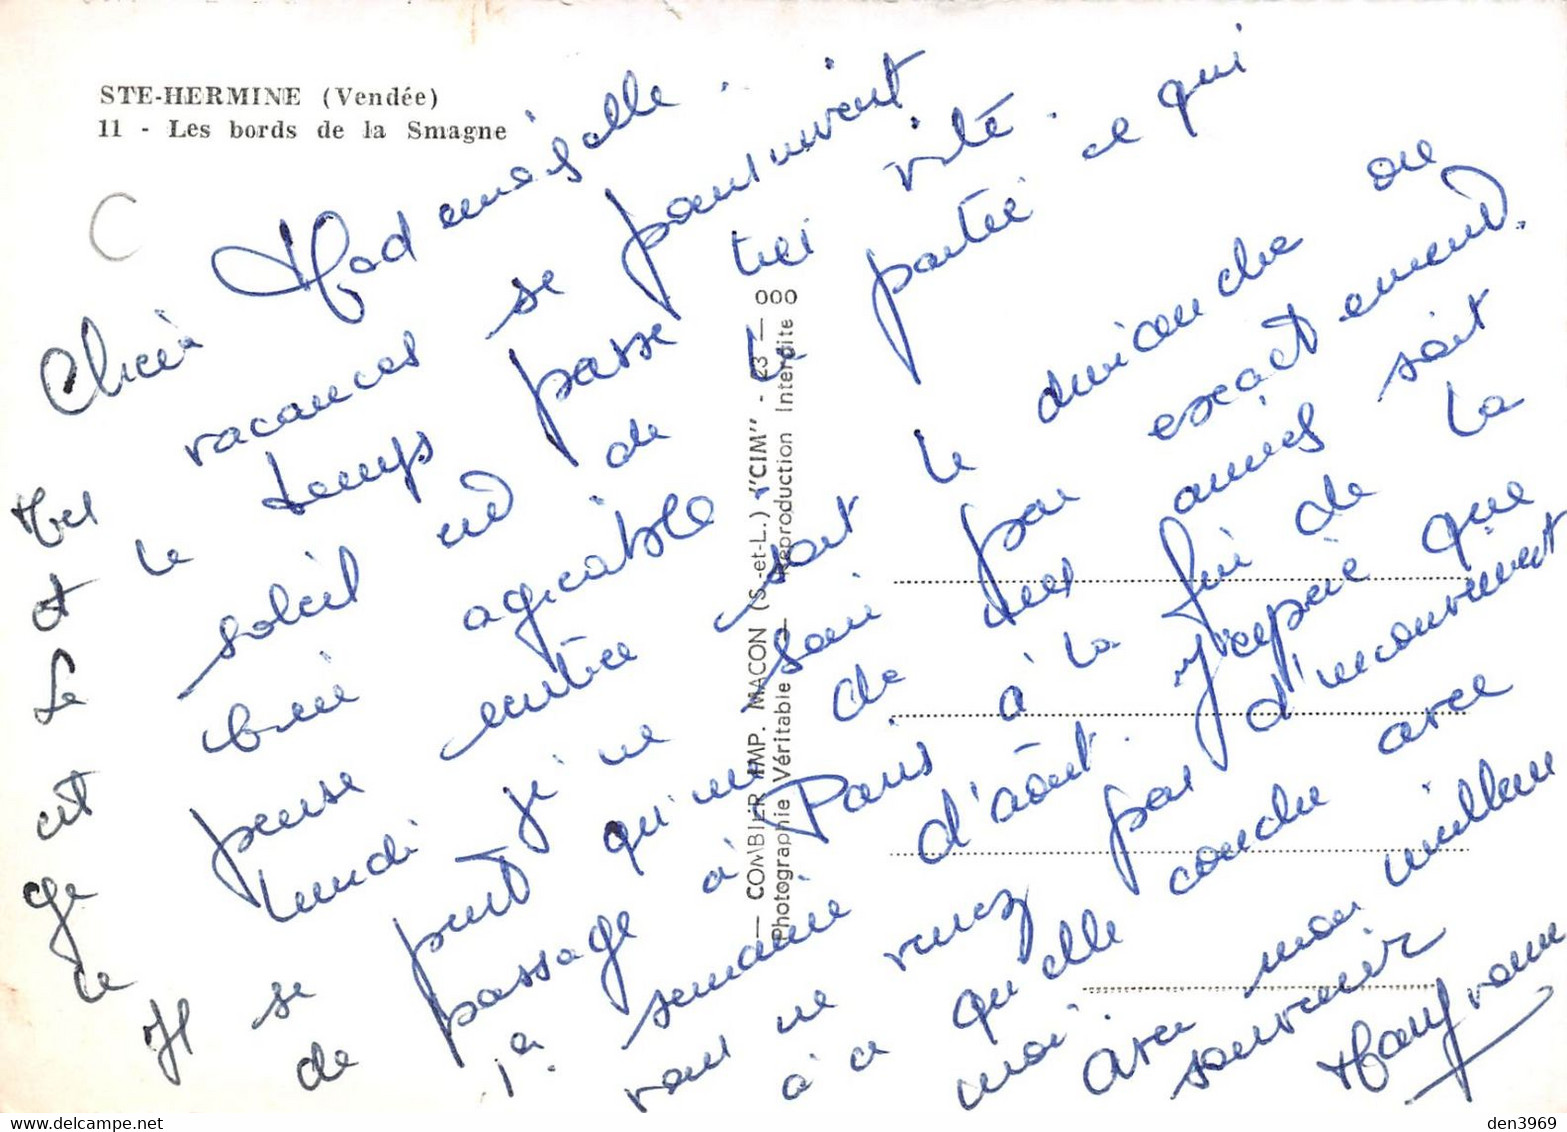 STE-HERMINE (Vendée)
11 - Les bords de la Smagne
Chère Mademoiselle.
Mes vacances se poursuivent
et le temps passe très vite.
Le soleil est de la partie ce qui
est bien agréable.
Je pense rentrée soit le dimanche ou
le lundi je ne sais pas exactement.
Il se peut qu'une de mes amies soit
de passage à Paris à la fin de la
1è semaine d'août. J'espère que
vous ne verrez pas d'inconvenient
à ce qu'elle couche avec
moi.
Avec mon meilleur
souvenir
— COMBIER IMP. MACON (S.-et-L.) "CIM" - 23 — 000
Photographie Véritable — Reproduction Interdite
den3969